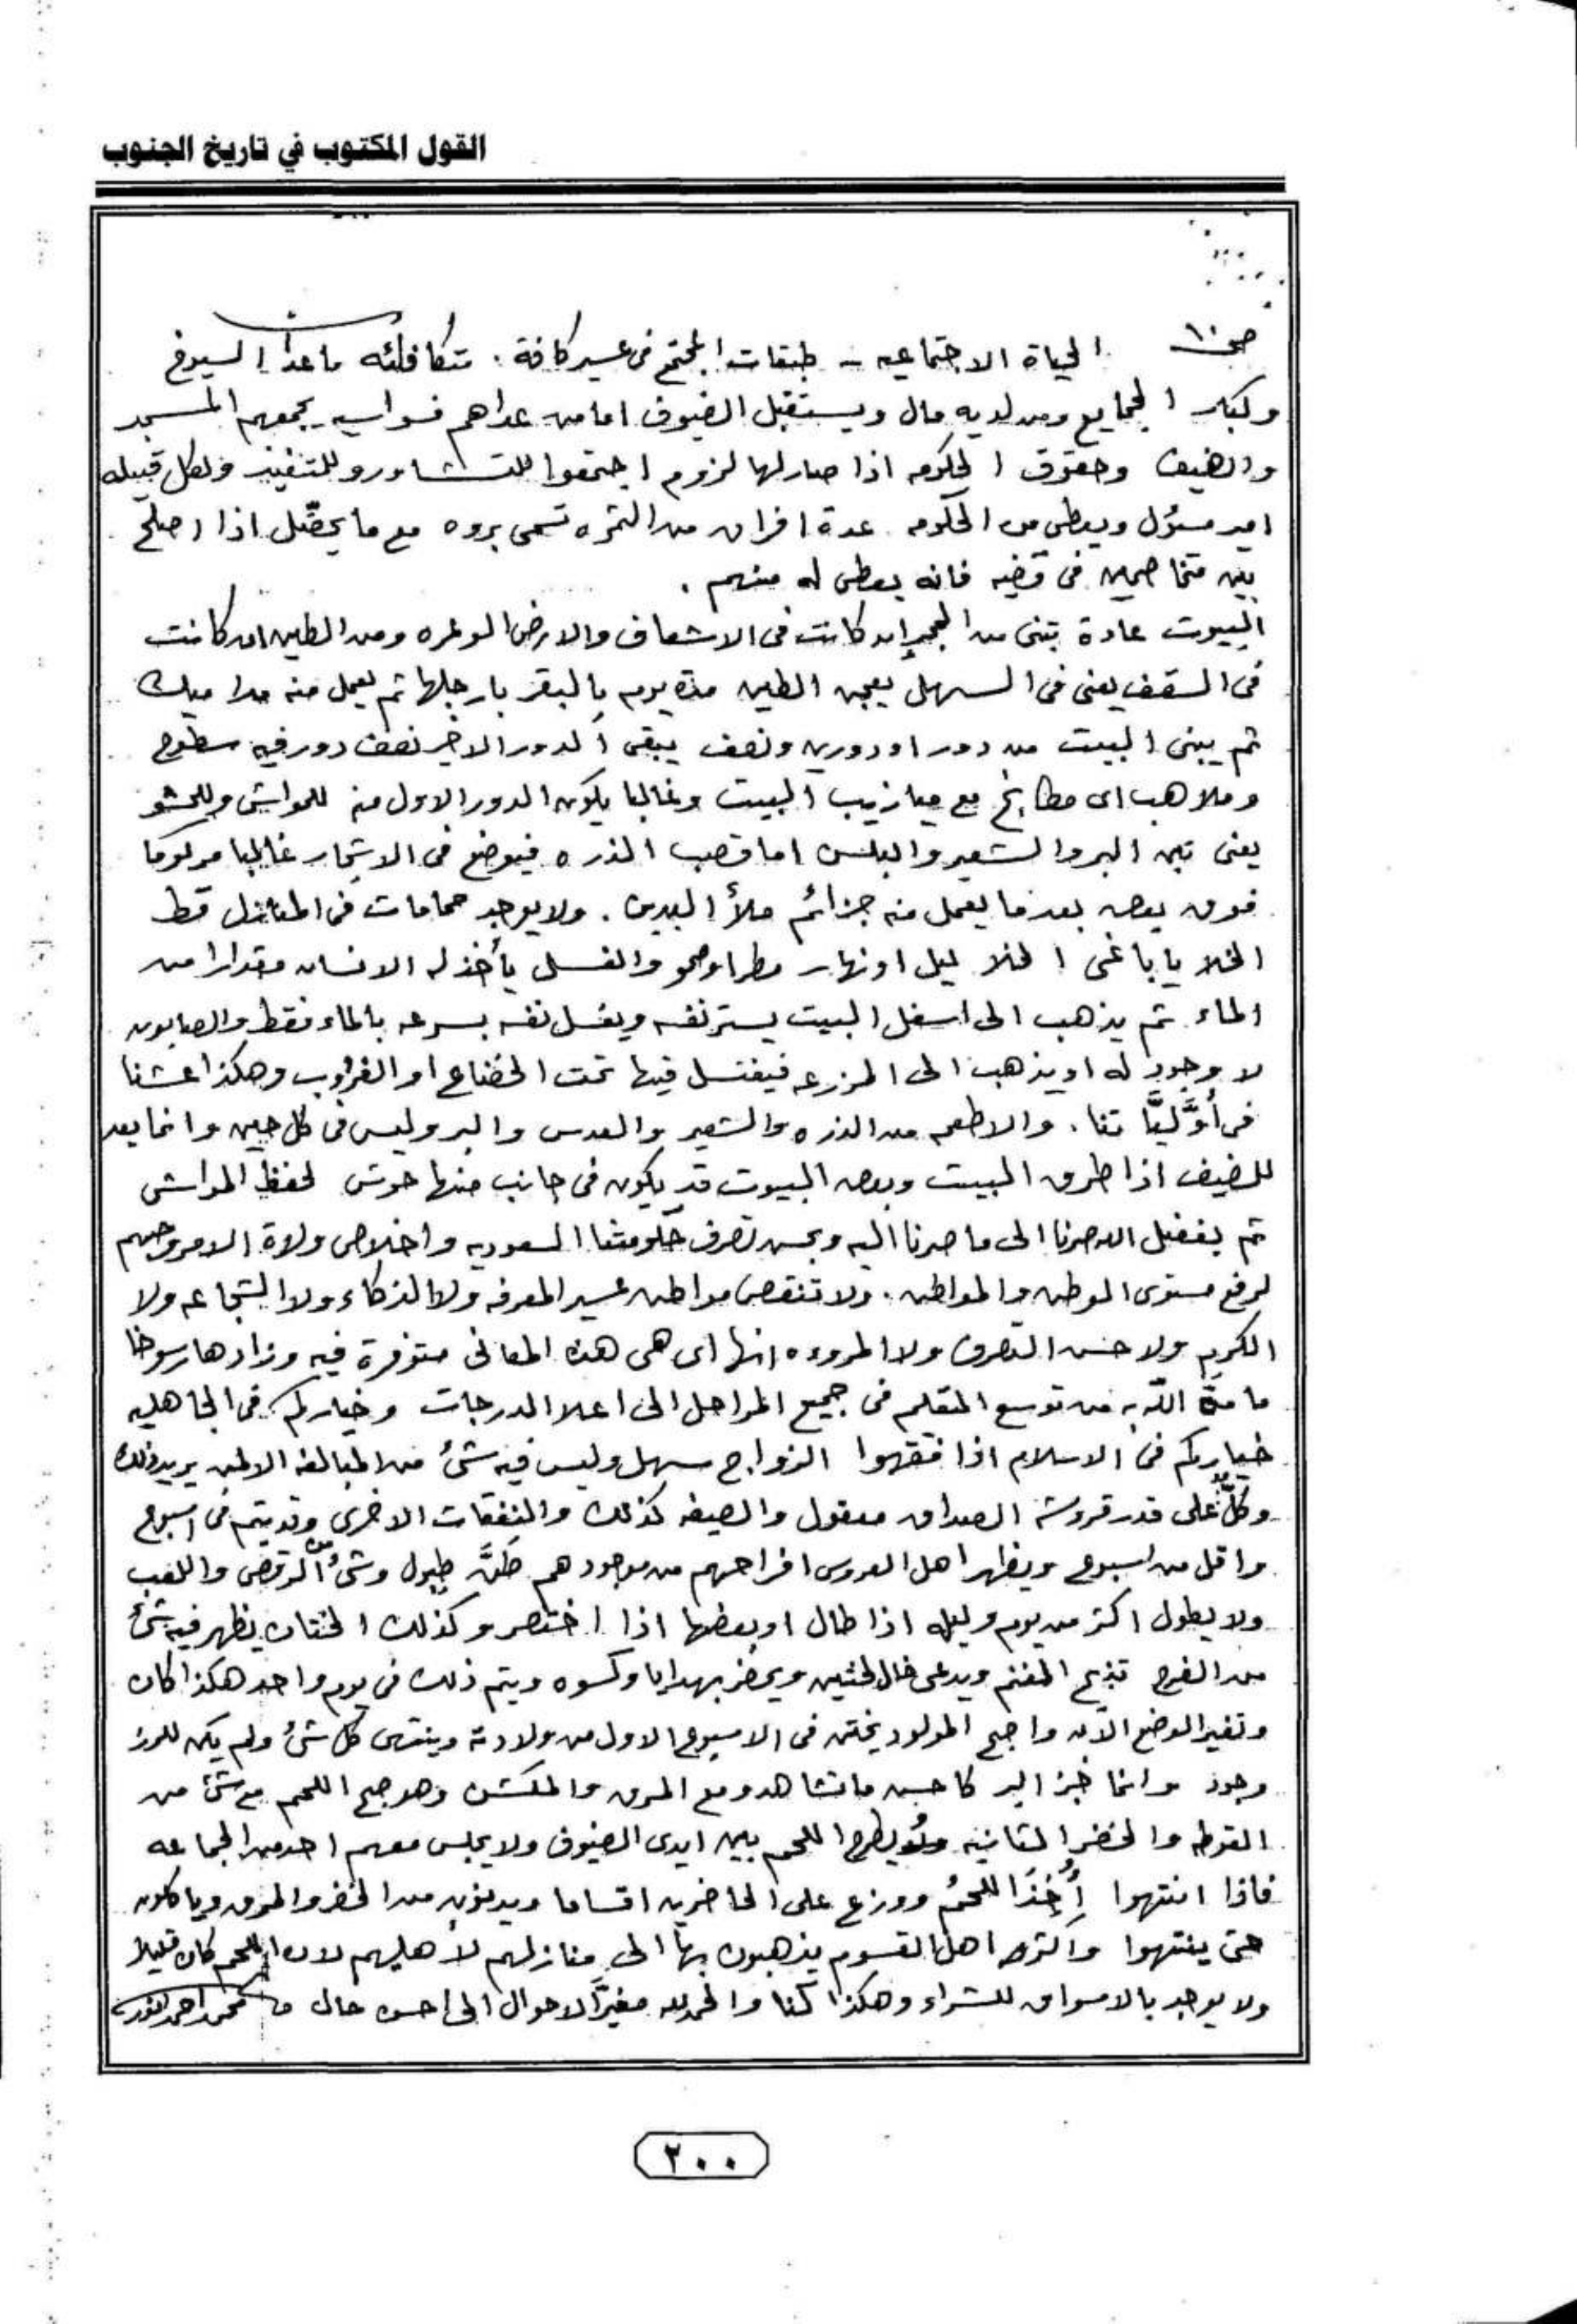 القول المكتوب في تاريخ الجنوب
ص١٠ الحياة الاجتماعيه - طبقات المجتمع فى عسير كافة. متكافئه ماعدا
وكبار ومن لديه مال ويستقبل الضيوف اما من عداهم فسواسيه يجمعهم المسجد
والضيف وحقوق الحكومه اذا صار لها لزوم اجتمعوا للتشاور وللتنفيذ ولكل قبيله
امير مسئول ويعطى من الحكومه عدة افراق من الذره تسمى بروه مع ما يحصّل اذا اصلح
بين متخاصمين فى قضيه فانه يعطى له منهم.
البيوت عادة تبنى من الحجر ان كانت فى الاشعاف والارض الوعره ومن الطين ان كانت
فى السقف يعنى فى السهل يعجن الطين مدة يوم بالبقر بارجلها ثم يعمل منه مداميك
ثم يبنى البيت من دور او دورين ونصف يبقى الدور الاخير نصف دور فيه سطوح
وملاهب اى مطابخ مع ميازيب البيت وغالبا يكون الدور الاول منه للمواشى وللحشو
يعنى تبن البر والشعير والبلس اما قصب الذره فيوضع فى الاشجار غالبا مركوما
فوق بعض بعدما يعمل منه جزائم ملأ اليدين. ولا يوجد حمامات فى المنازل قط
الخلا يا باغى الخلا ليل او نهار مطر او صحو والغسل يأخذ له الانسان مقدارا من
الماء ثم يذهب الى اسفل البيت يستر نفسه ويغسل نفسه بسرعه بالماء فقط والصابون
لا وجود له او يذهب الى المزرعه فيغتسل فيها تحت او الغروب وهكذا عشنا
فى أوَّليَّاتنا. والاطعمه من الذره والشعير والعدس والبر وليس فى كل حين وانما يعد
للضيف اذا طرق البيت وبعض البيوت قد يكون فى جانب منها حوش لحفظ المواشى
ثم بفضل الله صرنا الى ما صرنا اليه وبحسن تصرف حكومتنا السعوديه واخلاص ولاة الامر وحبهم
لرفع مستوى الوطن والمواطن. ولا تنقص مواطن عسير المعرفه ولا الذكاء ولا الشجاعه ولا
الكرم ولا حسن التصرف ولا المروءه انها اى هى هذه المعانى متوفرة فيه وزادها رسوخا
ما منَّ اللّه به من توسع التعليم فى جميع المراحل الى اعلا الدرجات وخياركم فى الجاهليه
خياركم فى الاسلام اذا فقهوا الزواج سهل وليس فيه شئ من المبالغه الا لمن يريد ذلك
وكلٌّ على قدر قروشه الصداق معقول والضيفه كذلك والنفقات الاخرى وقد يتم فى اسبوع
واقل من اسبوع ويظهر اهل العروس افراحهم من موجودهم طبول وشئ من الرقص واللعب
ولا يطول اكثر من يوم وليله اذا طال او بعضها اذا اختصر وكذلك الختان يظهر فيه شئ
من الفرح تذبح الغنم ويدعى خال الختين ويحضر بهدايا وكسوه ويتم ذلك فى يوم واحد هكذا كان
وتغير الوضع الآن واصبح المولود يختن فى الاسبوع الاول من ولادته وينتهى كل شئ ولم يكن للرز
وجود وانما خبز البر كاحسن ما تشاهد ومع المرق والمكشن وهو جمع اللحم مع شئ من
القوطه والخضر الثانيه ويطرح اللحم بين ايدى الضيوف ولا يجلس معهم احد من الجماعه
فاذا انتهوا أُخِذَ اللحمُ ووزع على الحاضرين اقساما ويدنون من الخضر والمرق وياكلون
حتى ينتهوا واكثر اهل القسوم يذهبون بها الى منازلهم لاهليهم لان اللحم كان قليلا
ولا يوجد بالاسواق للشراء وهكذا كنا والحمد لله مغيّر الاحوال الى احسن حال محمد احمد انور
٢٠٠